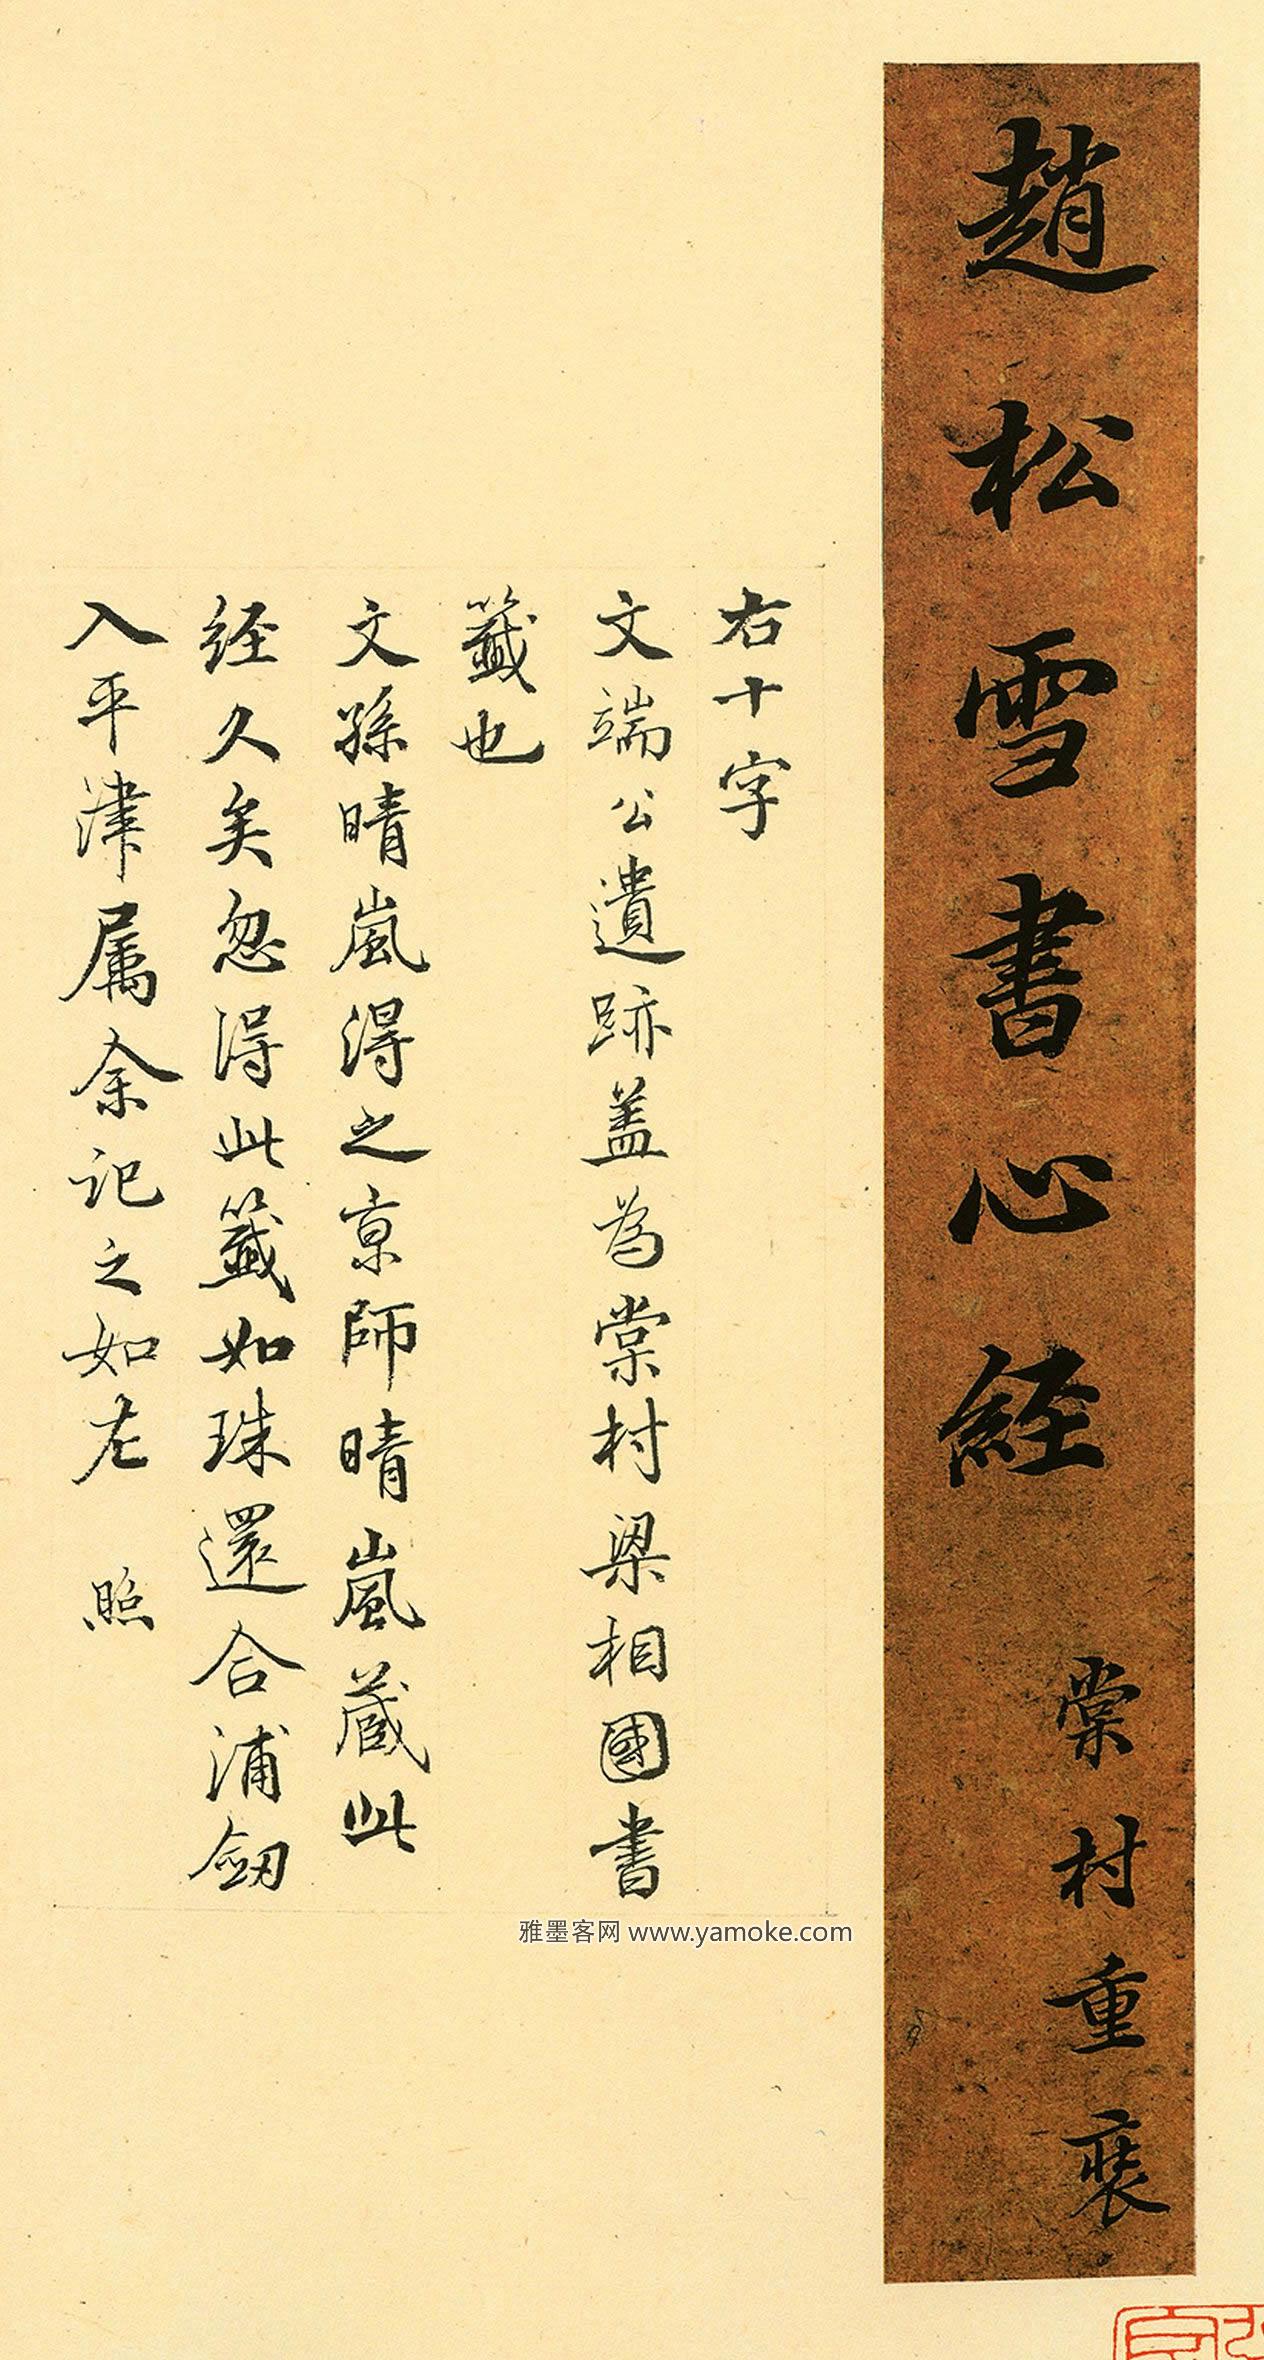 趙松雪書心經
棠村重裝
右十字
文端公遺跡蓋為棠村梁相國書
籤也
文孫晴嵐得之京師晴嵐蔵此
经久矣忽得此籤如珠還合浦劒
入平津属余记之如左 照
雅墨客网 www.yamoke.com